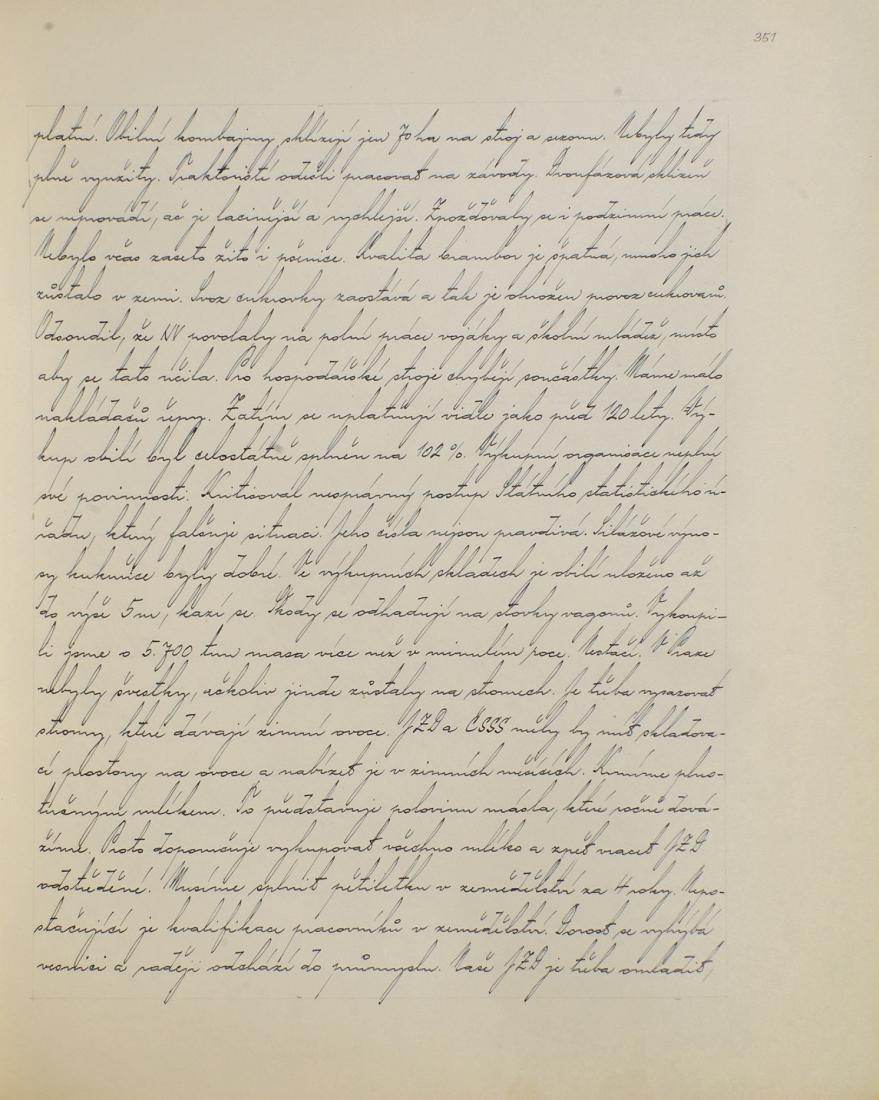 351
platní. Obilní kombajny sklízejí jen 70 ha na stroj a sezonu. Nebyly tedy
plně využity. Traktoristé odešli pracovat na závody. Dvoufázová sklizeň
se neprovádí, ač je lacinější a rychlejší. Zpožďovaly se i podzimní práce.
Nebylo včas zaseto žito i pšenice. Kvalita brambor je špatná, mnoho jich
zůstalo v zemi. Svoz cukrovky zaostává a tak je ohrožen provoz cukrovarů.
Odsoudil, že NV povolaly na polní práce vojáky a školní mládež, místo
aby se tato učila. Pro hospodářské stroje chybějí součástky. Máme málo
nakládačů řepy. Zatím se uplatňují vidle jako před 120 lety. Vý-
kup obilí byl celostátně splněn na 102 %. Výkupní organisace neplní
své povinnosti. Kritisoval nesprávný postup Státního statistického ú-
řadu, který falšuje situaci. Jeho čísla nejsou pravdivá. Silážové výno-
sy kukuřice byly dobré. Ve výkupních skladech je obilí uloženo až
do výše 5 m, kazí se. Škody se odhadují na stovky vagonů. Vykoupi-
li jsme o 5.700 tun masa více než v minulém roce. Nestačí. V Praze
nebyly švestky, ačkoliv jinde zůstaly na stromech. Je třeba vysazovat
stromy, které dávají zimní ovoce. JZD a ČSSS měly by mít skladova-
cí prostory na ovoce a nabízet je v zimních měsících. Krmíme plno-
tučným mlékem. To představuje polovinu másla, které ročně dová-
žíme. Proto doporučuje vykupovat všechno mléko a zpět vracet JZD
odstředěné. Musíme splnit pětiletku v zemědělství za 4 roky. Nepo-
stačující je kvalifikace pracovníků v zemědělství. Dorost se vyhýbá
vesnici a raději odchází do průmyslu. Naše JZD je třeba omladit,